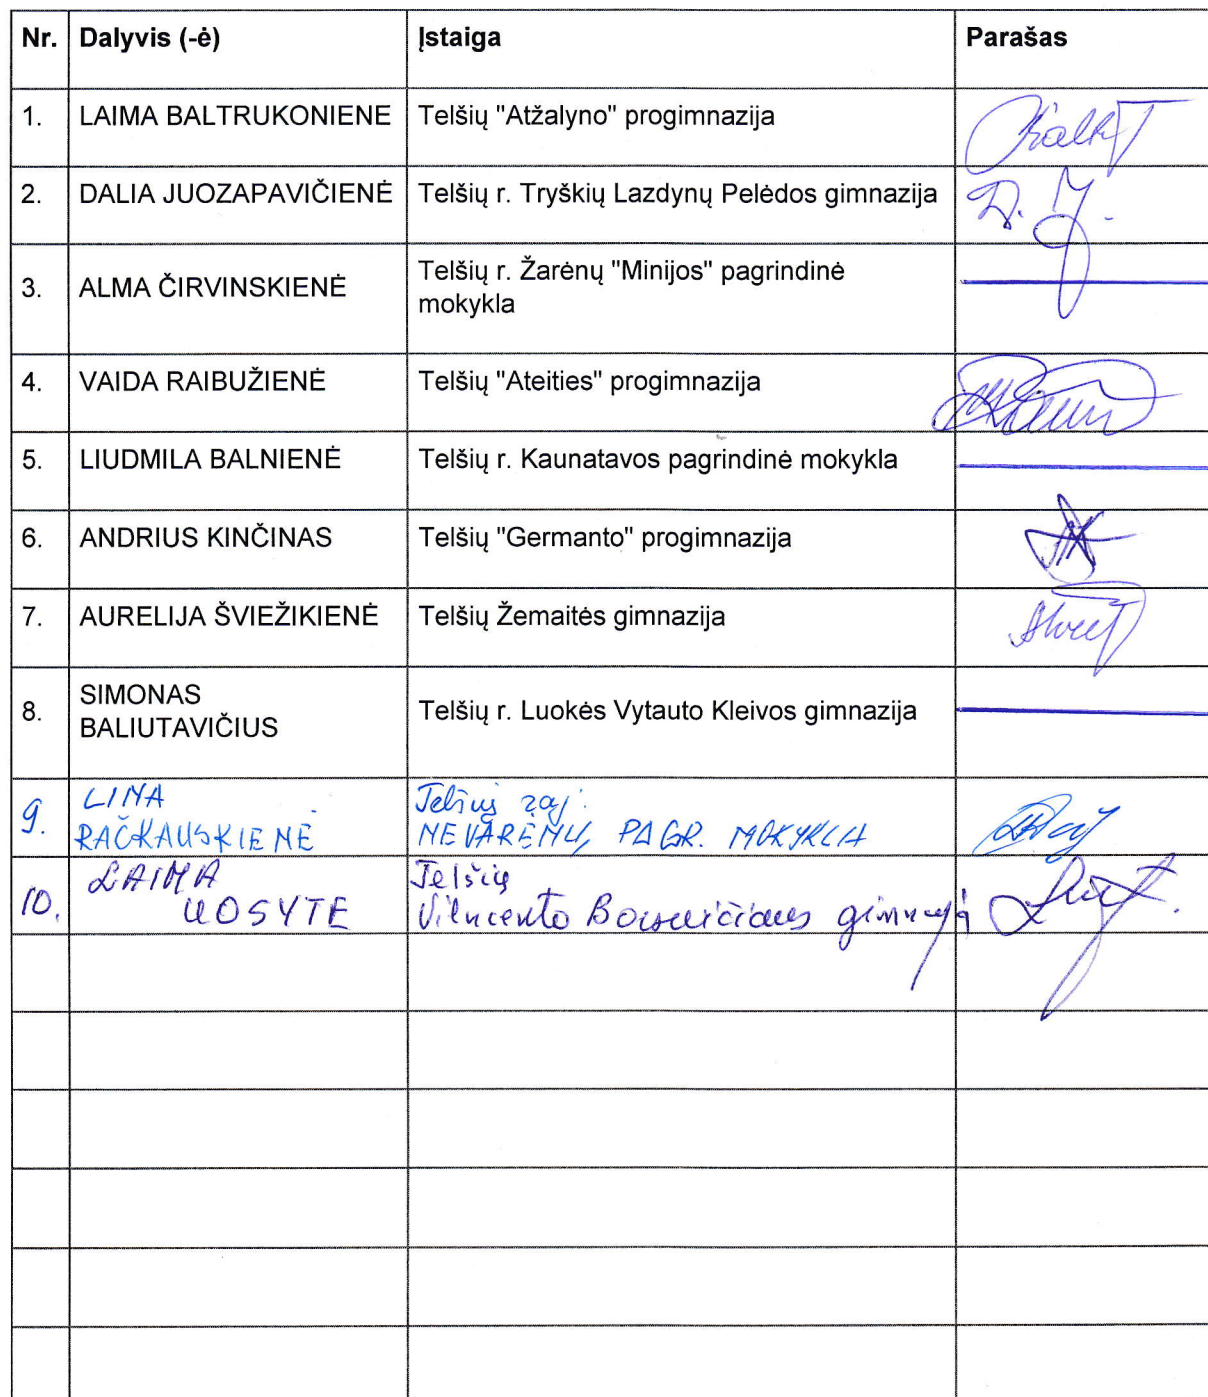 Nr. Dalyvis (-ė) Įstaiga Parašas
1. LAIMA BALTRUKONIENE Telšių "Atžalyno" progimnazija
2. DALIA JUOZAPAVIČIENĖ Telšių r. Tryškių Lazdynų Pelėdos gimnazija D. J.
3. ALMA ČIRVINSKIENĖ Telšių r. Žarėnų "Minijos" pagrindinė
mokykla
4. VAIDA RAIBUŽIENĖ Telšių "Ateities" progimnazija
5. LIUDMILA BALNIENĖ Telšių r. Kaunatavos pagrindinė mokykla
6. ANDRIUS KINČINAS Telšių "Germanto" progimnazija
7. AURELIJA ŠVIEŽIKIENĖ Telšių Žemaitės gimnazija
8. SIMONAS
BALIUTAVIČIUS Telšių r. Luokės Vytauto Kleivos gimnazija
9. LINA
RAČKAUSKIENĖ Telšių raj.
NEVARĖNŲ PAGR. MOKYKLA
10. LAIMA
UOSYTE Telšių
Vincento Borisevičiaus